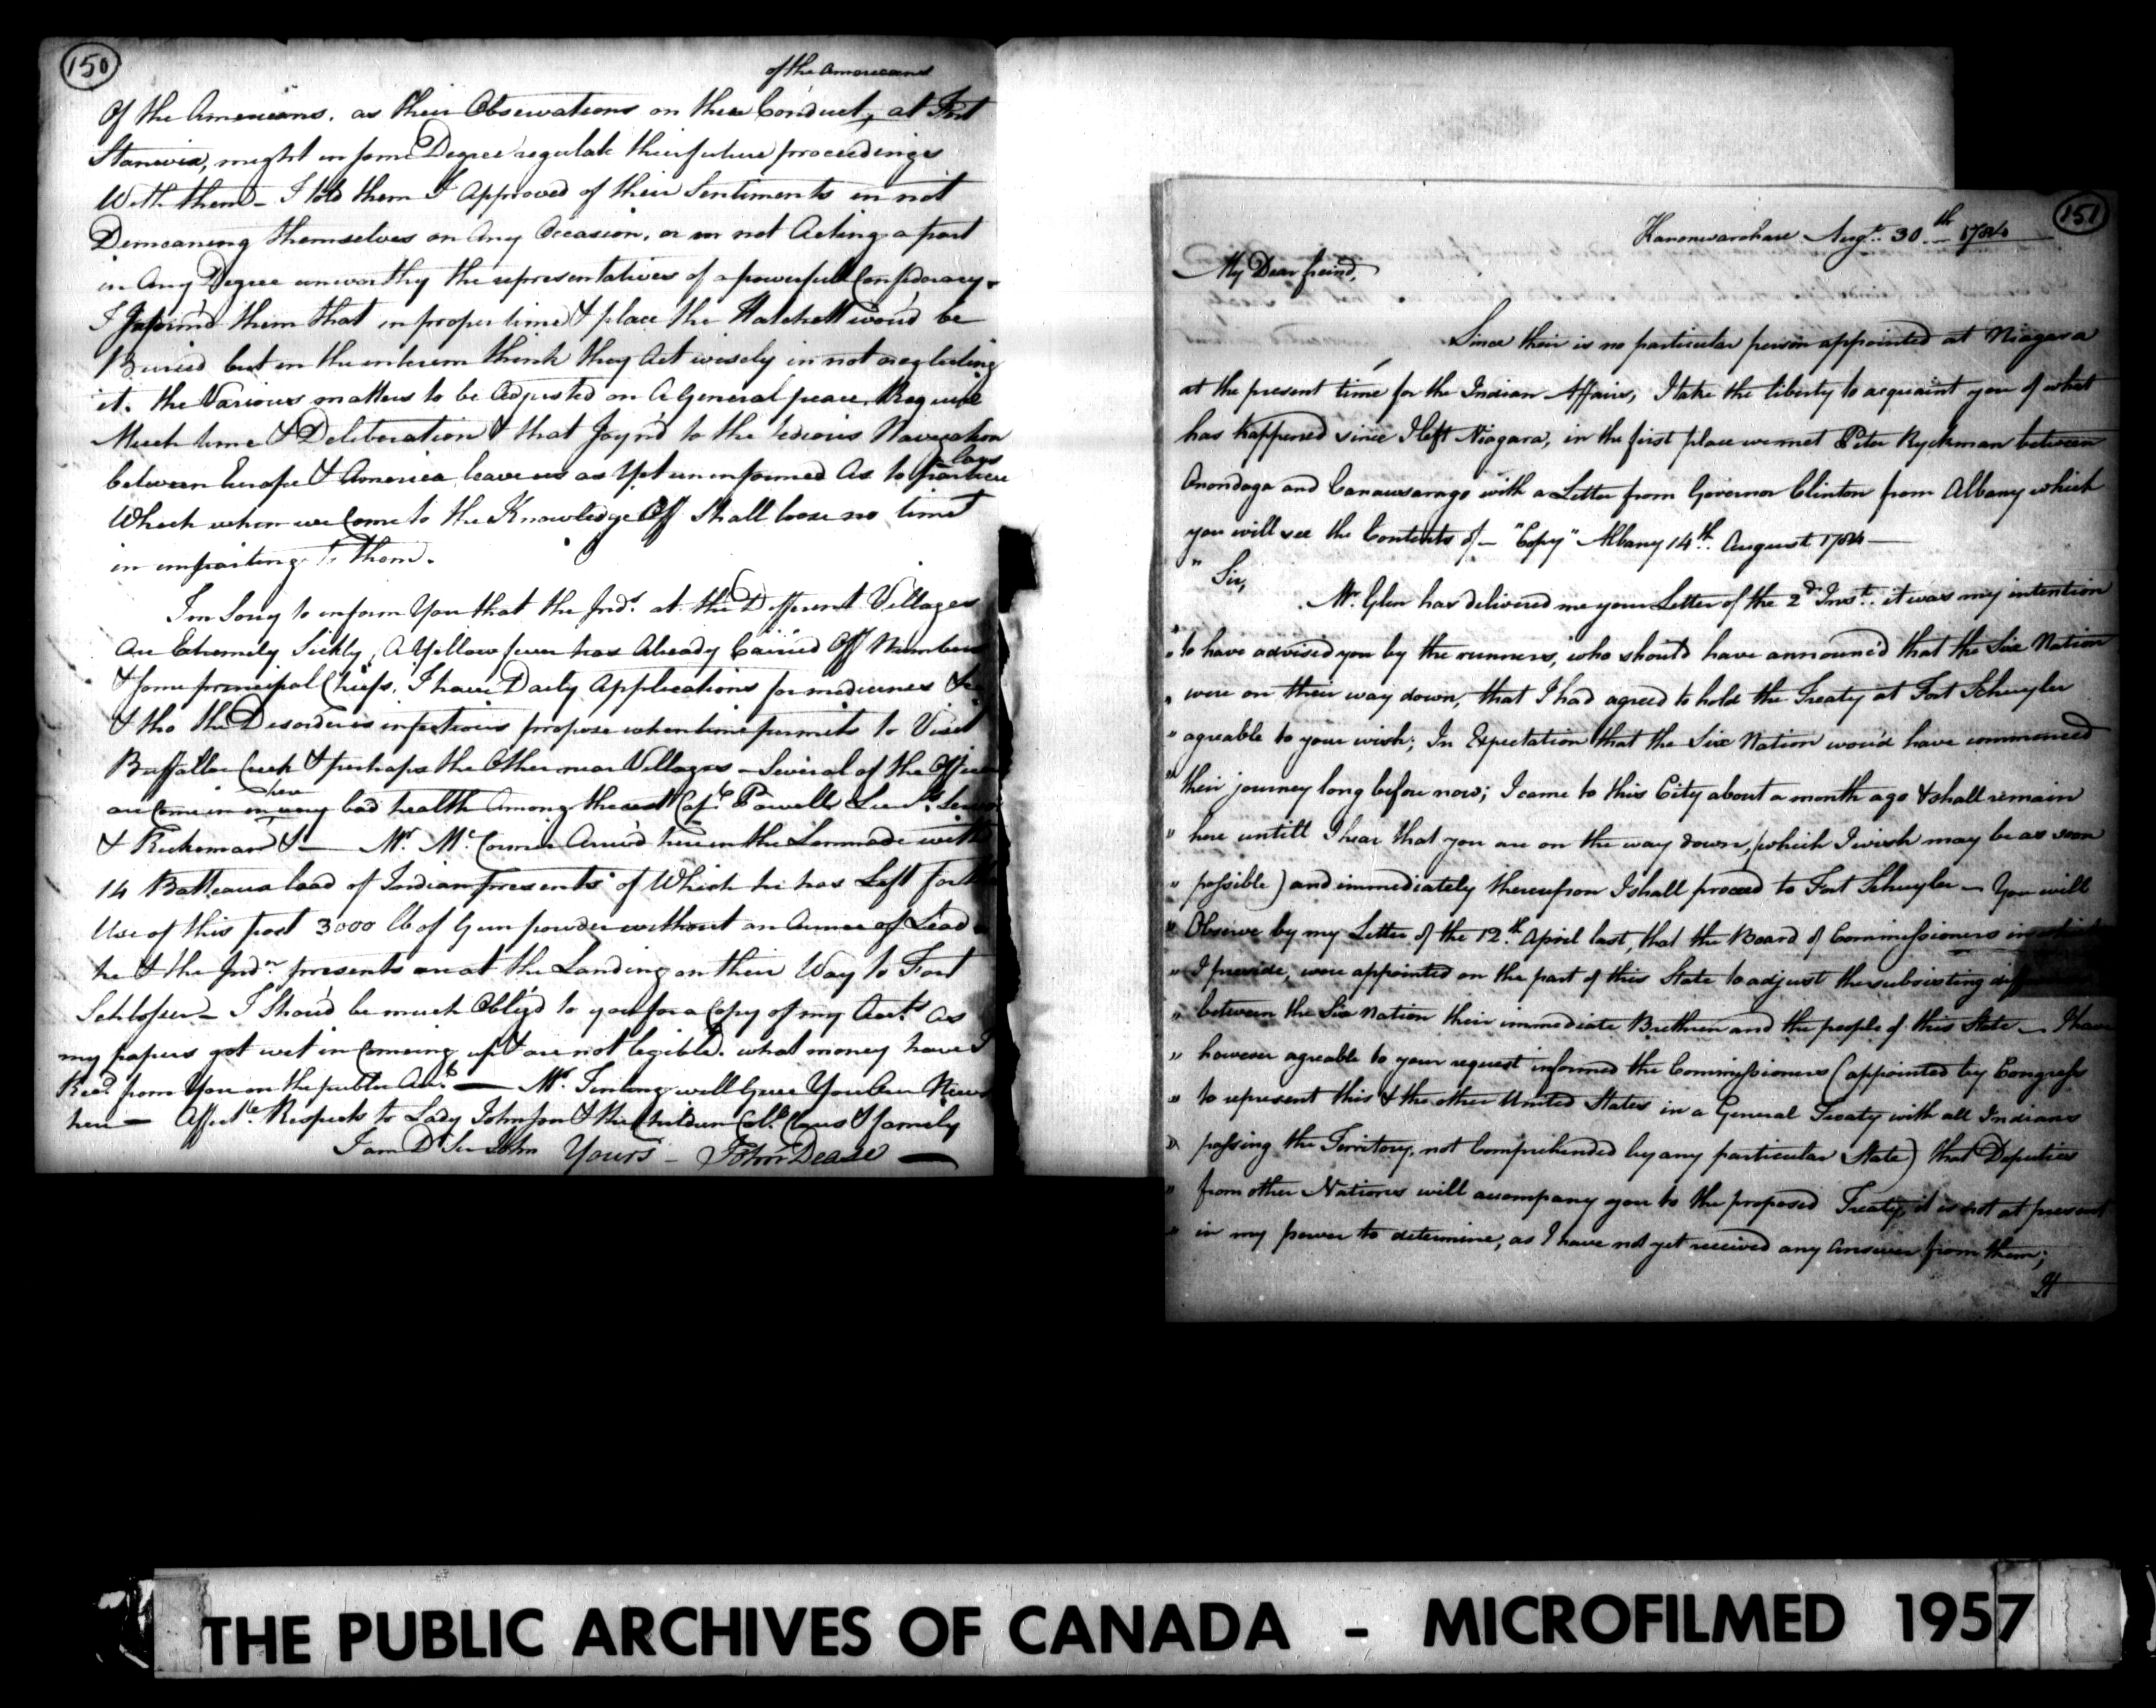 150
of the Americans
Of the Americans. as their Observations on their Conduct, at Fort
Stanwix, might in some Degree regulate their future proceedings
With them - I told them I Approved of their Sentiments in not
Demeaning themselves on Any Occasion, or in not Acting a part
in Any Degree unworthy the representatives of a powerfull Confederacy.
I Inform'd them that in proper time & place the Hatchett wou'd be
Buried but in the interim think they Act wisely in not neglecting
it. the Various matters to be Adjusted on A General peace, Require
Much time & Deliberation & that Joyn'd to the tedious Navigation
between Europe & America leave us as Yet uninformed As to particu
lars
Which when we Come to the Knowledge Off Shall loose no time
in imparting to them.
I'm Sorry to inform You that the Inds. at the Different Villages
are Extremely Sickly, A Yellow fever has Already Carried Off Numbers
& some principal Chiefs. I have Daily Applications for medicines &c
& tho the Disorder is infectious propose when time permits to Visit
Buffalloe Creek & perhaps the Other near Villages - Several of the Officers
are Come in in very bad health Among the rest Capt. Powell Lieuts.
here
& Ruckman &- Mr. McCormic Arriv'd here in the Limnade with
14 Batteaux load of Indian presents of Which he has Left for the
Use of this post 3000 lb of Gun powder without an Ounce of Lead
he & the Indn. presents are at the Landing on their Way to Fort
Schlosser - I Shou'd be much Oblig'd to you for a Copy of my Acct. As
my papers got wet in Comeing up & are not legible. what money have I
Recd. from You on the public Acct. - Mr. Tinling will Give You Our News
here - Affecte. Respects to Lady Johnson & the Children Coll. Claus & famely
I am Dr. Sir John Yours - John Dease
151
Kanonwarohare Augt. 30th. 1784
My Dear freind,
Since their is no particular person appointed at Niagara
at the present time for the Indian Affairs, I take the liberty to acquaint you of what
has happened since I left Niagara, in the first place we met Peter Ryckman between
Onondaga and Canawsarago with a Letter from Governor Clinton from Albany which
you will see the Contents of - "Copy" Albany 14th. August 1784 -
" Sir,
Mr. Glen has delivered me your Letter of the 2d. Inst. it was my intention
" to have advised you by the runners, who should have announc'd that the Six Nation
" were on their way down, that I had agreed to hold the Treaty at Fort Schuyler
" agreable to your wish; In Expectation that the Six Nation wou'd have commenced
" their journey long before now; I came to this City about a month ago & shall remain
" here untill I hear that you are on the way down, (which I wish may be as soon
" possible) and immediately thereupon I shall proceed to Fort Schuyler - You will
" Observe by my Letter of the 12th. April last, that the Board of Commissioners in which
" I preside, were appointed on the part of this State to adjust the subsisting
" between the Six Nation their immediate Brethren and the people of this State - I have
" however agreable to your request informed the Commissioners (appointed by Congress
" to represent this & the other United States in a General Treaty with all Indians
" passing the Territory, not Comprehended by any particular State) that Deputies
" from other Nations will accompany you to the proposed Treaty, it is not at present
" in my power to determine, as I have not yet received any Answer from them;
THE PUBLIC ARCHIVES OF CANADA - MICROFILMED 1957